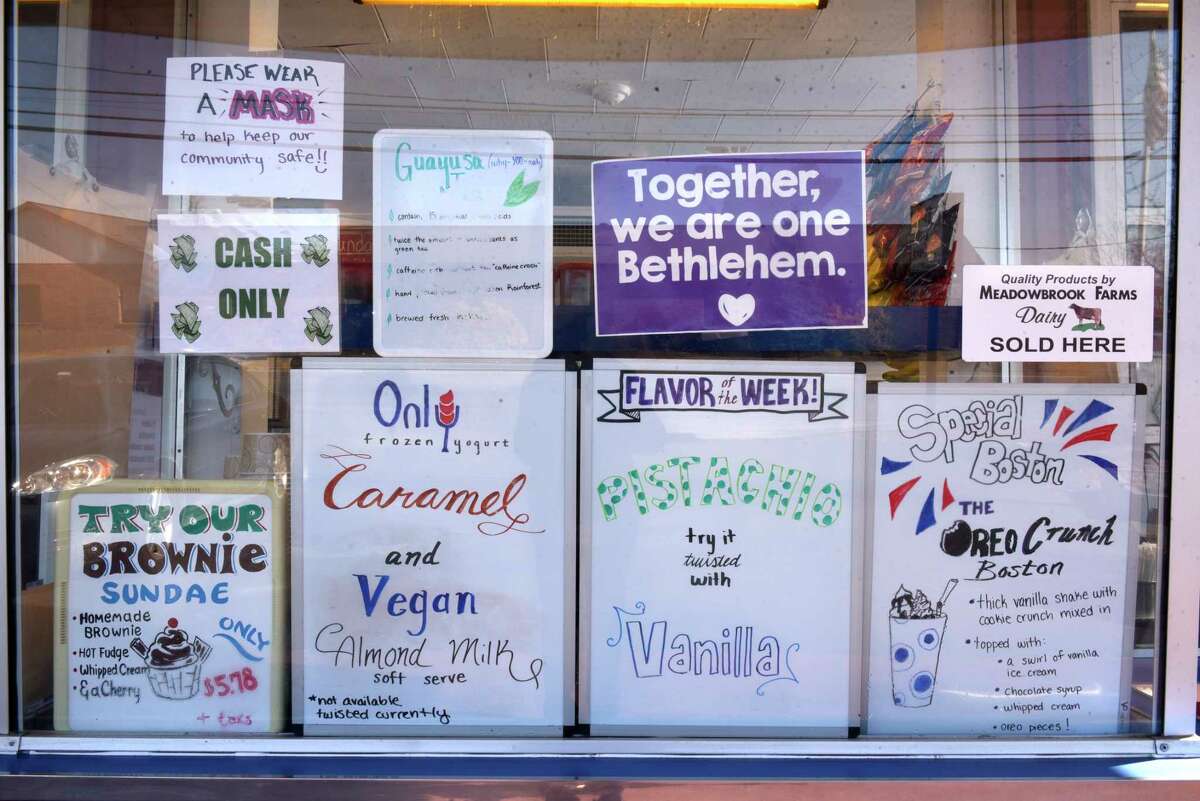 PLEASE WEAR
A MASK
to help keep our
community safe!!
CASH
ONLY
Guayusa
contain, 15
twice the
as
green tea
caffeine rich
"caffeine crash"
hand
Rainforest
brewed fresh
Together,
we are one
Bethlehem.
Quality Products by
MEADOWBROOK FARMS
Dairy
SOLD HERE
TRY OUR
BROWNIE
SUNDAE
• HOMEMADE
BROWNIE
• HOT FUDGE
• Whipped Cream
• & a Cherry
ONLY
$5.78
+ tax
Only
frozen yogurt
Caramel
and
Vegan
Almond Milk
soft serve
*not available
twisted currently
FLAVOR of the WEEK!
PISTACHIO
try it
twisted
with
Vanilla
Special
Boston
THE
OREO Crunch
Boston
• thick vanilla shake with
cookie crunch mixed in
• topped with:
• a swirl of vanilla
ice cream
• chocolate syrup
• whipped cream
• oreo pieces!